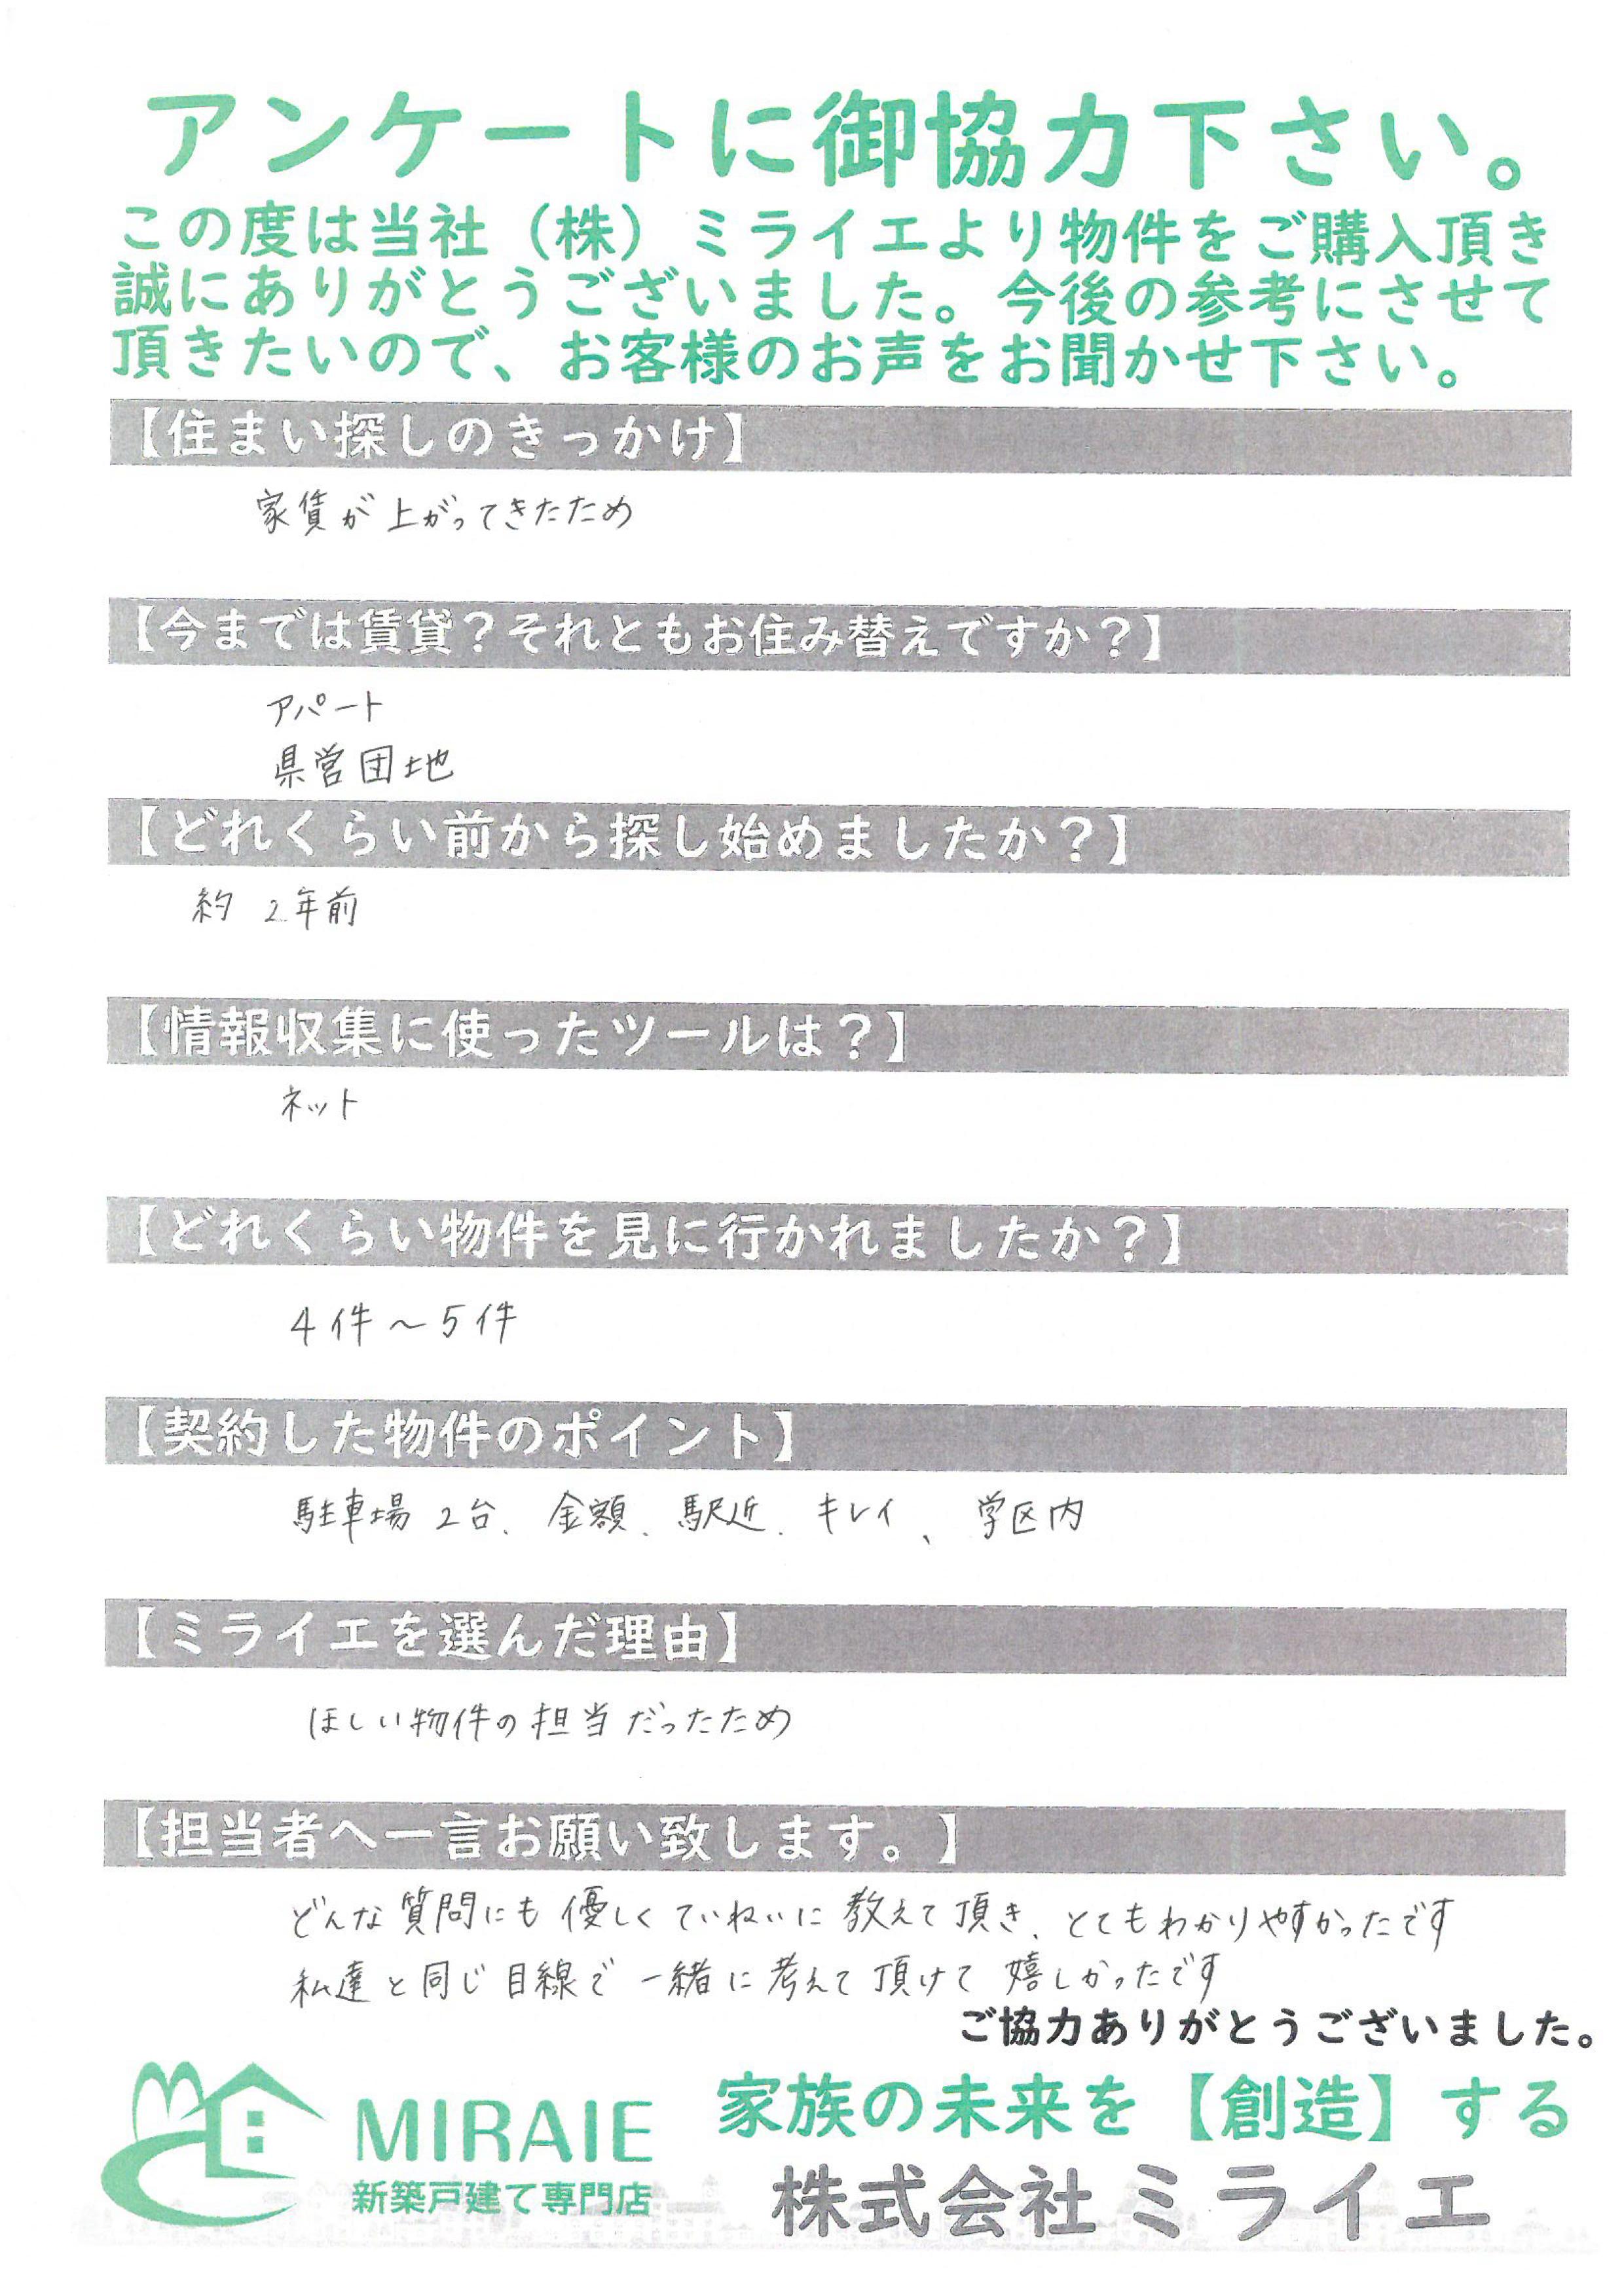 アンケートに御協力下さい。
この度は当社（株）ミライエより物件をご購入頂き
誠にありがとうございました。今後の参考にさせて
頂きたいので、お客様のお声をお聞かせ下さい。
【住まい探しのきっかけ】
家賃が上がってきたため
【今までは賃貸？それともお住み替えですか？】
アパート
県営団地
【どれくらい前から探し始めましたか？】
約 2年前
【情報収集に使ったツールは？】
ネット
【どれくらい物件を見に行かれましたか？】
4件～5件
【契約した物件のポイント】
駐車場 2台、金額、駅近、キレイ、学区内
【ミライエを選んだ理由】
ほしい物件の担当だったため
【担当者へ一言お願い致します。】
どんな質問にも優しくていねいに教えて頂き、とてもわかりやすかったです
私達と同じ目線で一緒に考えて頂けて嬉しかったです
ご協力ありがとうございました。
MIRAIE
新築戸建て専門店
家族の未来を【創造】する
株式会社ミライエ